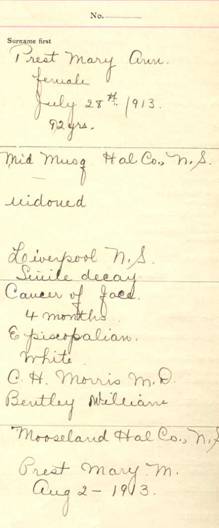 No.
Surname first
Prest Mary Ann.
female
July 28th 1913.
92 yrs.
Mid Musq Hal Co., N.S.
widowed
Liverpool N.S.
Senile decay
Cancer of face.
4 months
Episcopalian.
White
C. H. Morris M.D.
Bentley William
Mooseland Hal Co., N.S
Prest Mary M.
Aug 2 - 1913.